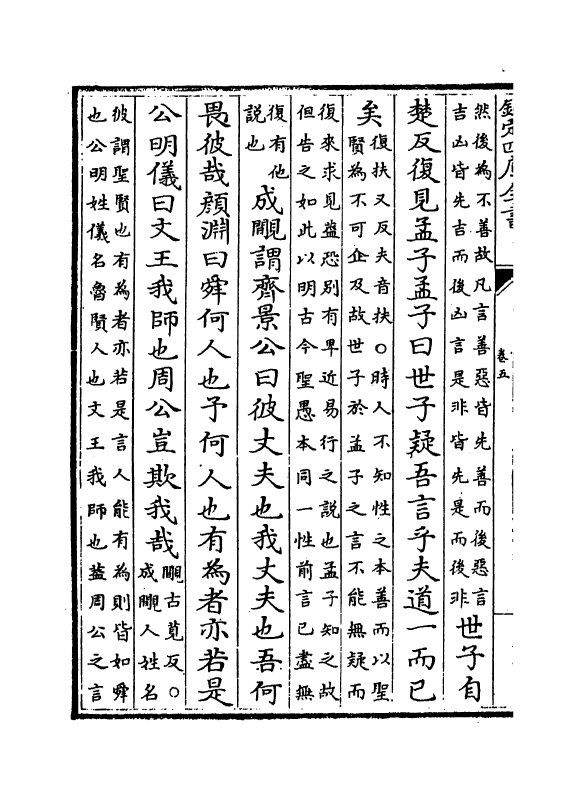 欽定四庫全書
卷五
然後為不善故凡言善惡皆先善而後惡言
吉凶皆先吉而後凶言是非皆先是而後非
世子自
楚反復見孟子孟子曰世子疑吾言乎夫道一而已
矣
復扶又反夫音扶○時人不知性之本善而以聖
賢為不可企及故世子於孟子之言不能無疑而
復來求見蓋恐别有卑近易行之説也孟子知之故
但告之如此以明古今聖愚本同一性前言已盡無
復有他
説也
成覸謂齊景公曰彼丈夫也我丈夫也吾何
畏彼哉顔淵曰舜何人也予何人也有為者亦若是
公明儀曰文王我師也周公豈欺我哉
覸古莧反○
成覸人姓名
彼謂聖賢也有為者亦若是言人能有為則皆如舜
也公明姓儀名魯賢人也文王我師也蓋周公之言